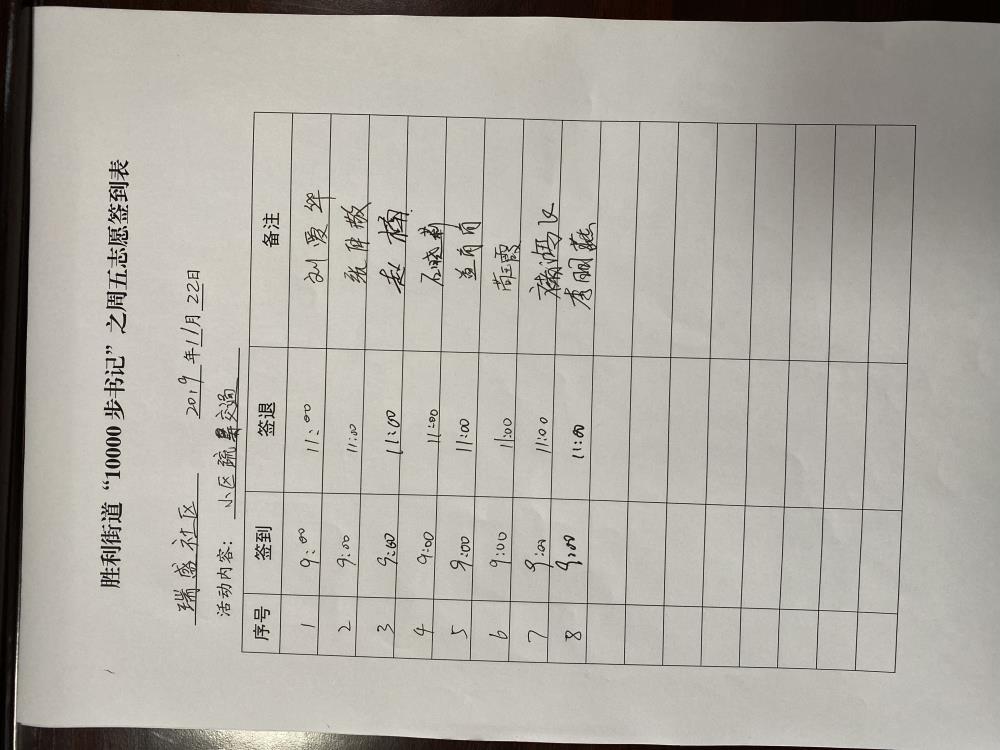 胜利街道“10000步书记”之周五志愿签到表
瑞盛社区 2019年11月22日
活动内容: 小区疏导交通
序号 签到 签退 备注
1 9:00 11:00 刘爱华
2 9:00 11:00
3 9:00 11:00 赵楠
4 9:00 11:00 石晓莉
5 9:00 11:00
6 9:00 11:00
7 9:00 11:00
8 9:00 11:00 李丽燕